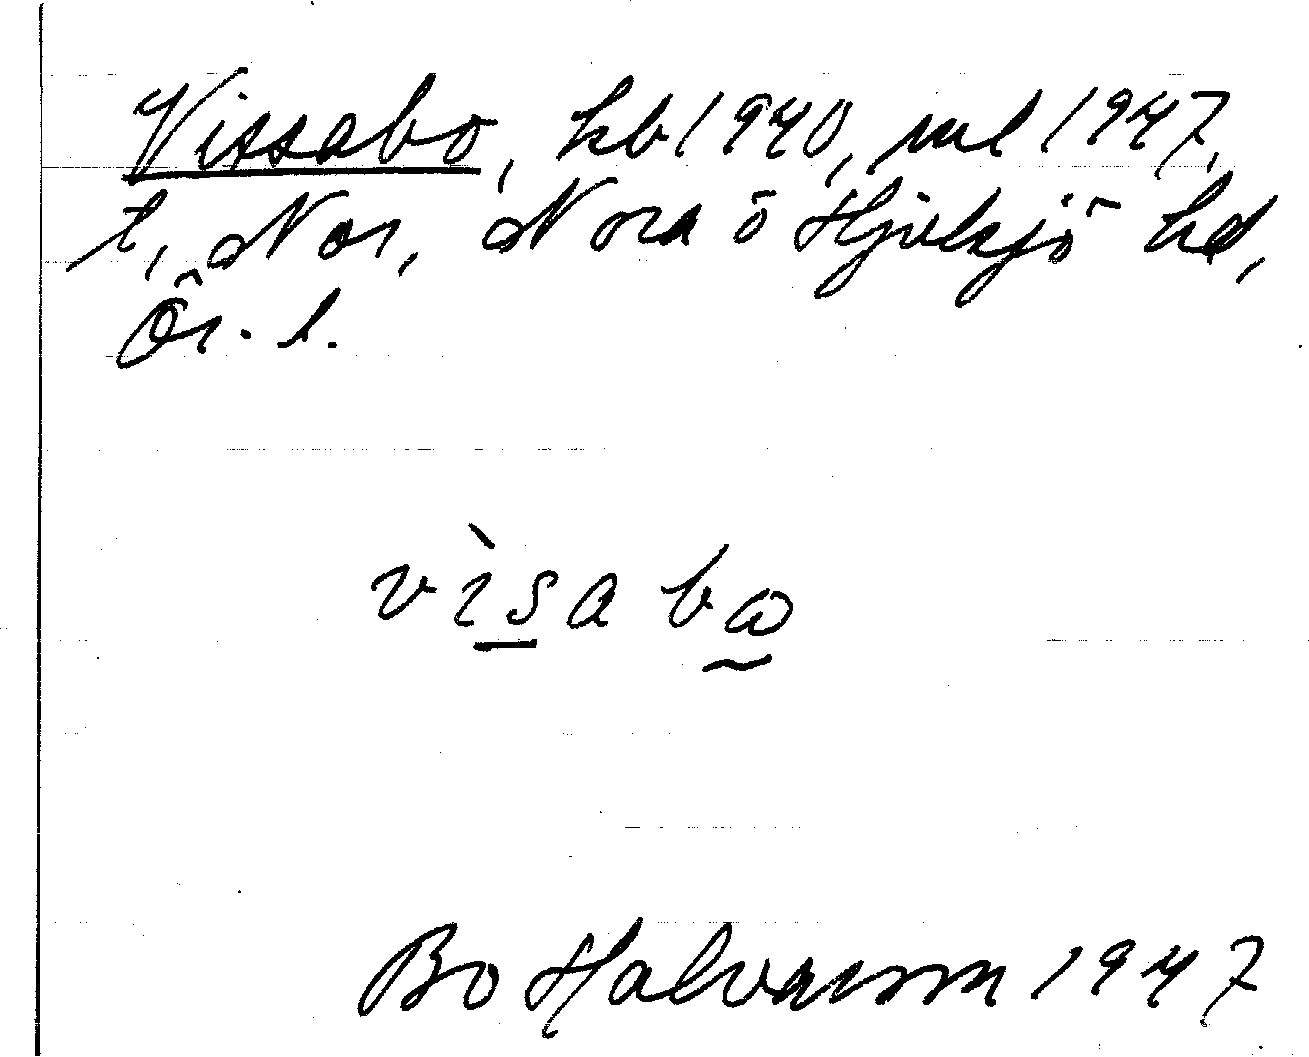 Vissabo, kb 1940, ml 1947,
t, Nor, Nora o Hjulsjö hd,
Ör. l.
vìsabω
Bo Halvarsson 1947